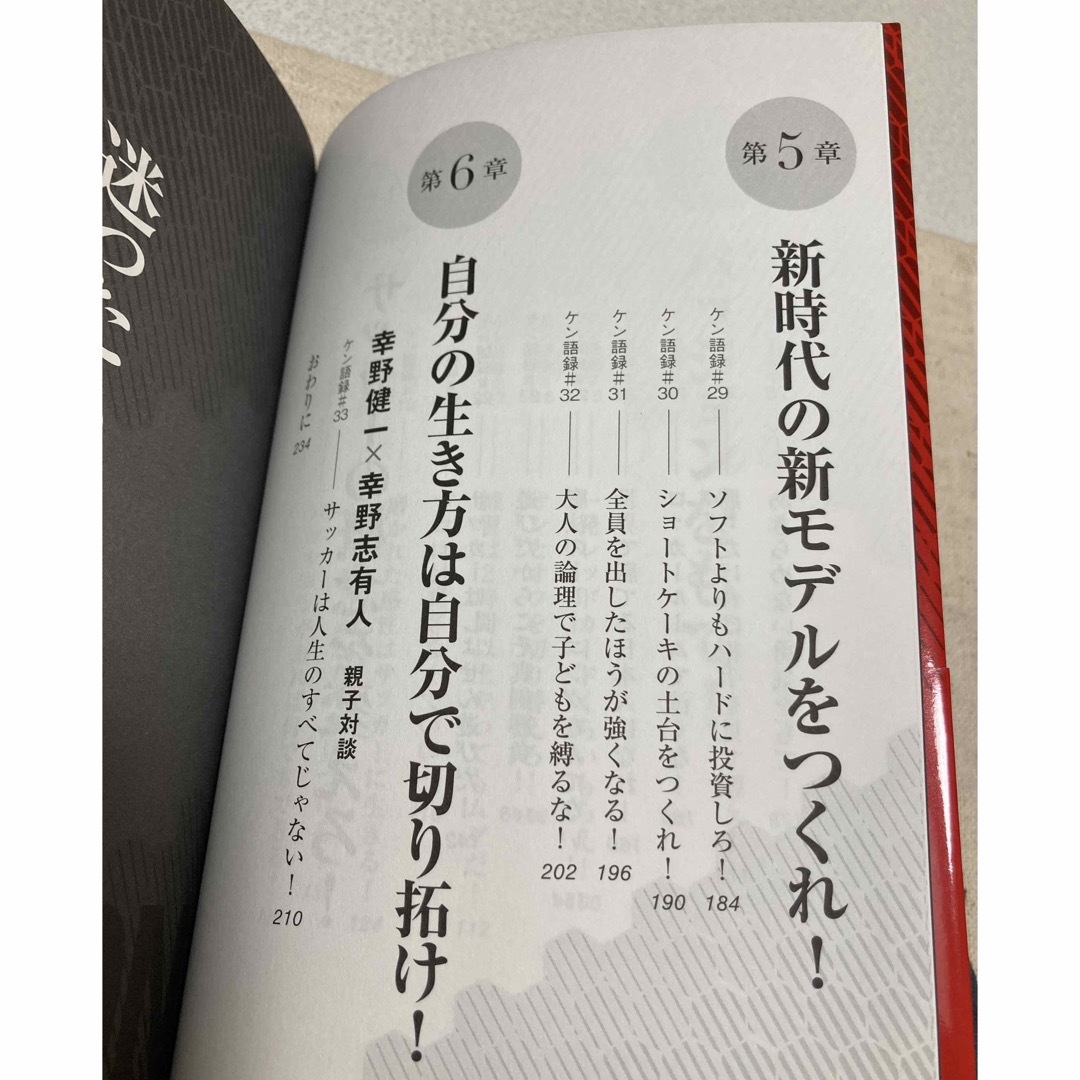 第5章
新時代の新モデルをつくれ！
ケン語録#29――ソフトよりもハードに投資しろ！ 184
ケン語録#30――ショートケーキの土台をつくれ！ 190
ケン語録#31――全員を出したほうが強くなる！ 196
ケン語録#32――大人の論理で子どもを縛るな！ 202
第6章
自分の生き方は自分で切り拓け！
幸野健一×幸野志有人 親子対談
ケン語録#33――サッカーは人生のすべてじゃない！ 210
おわりに 234
迷った